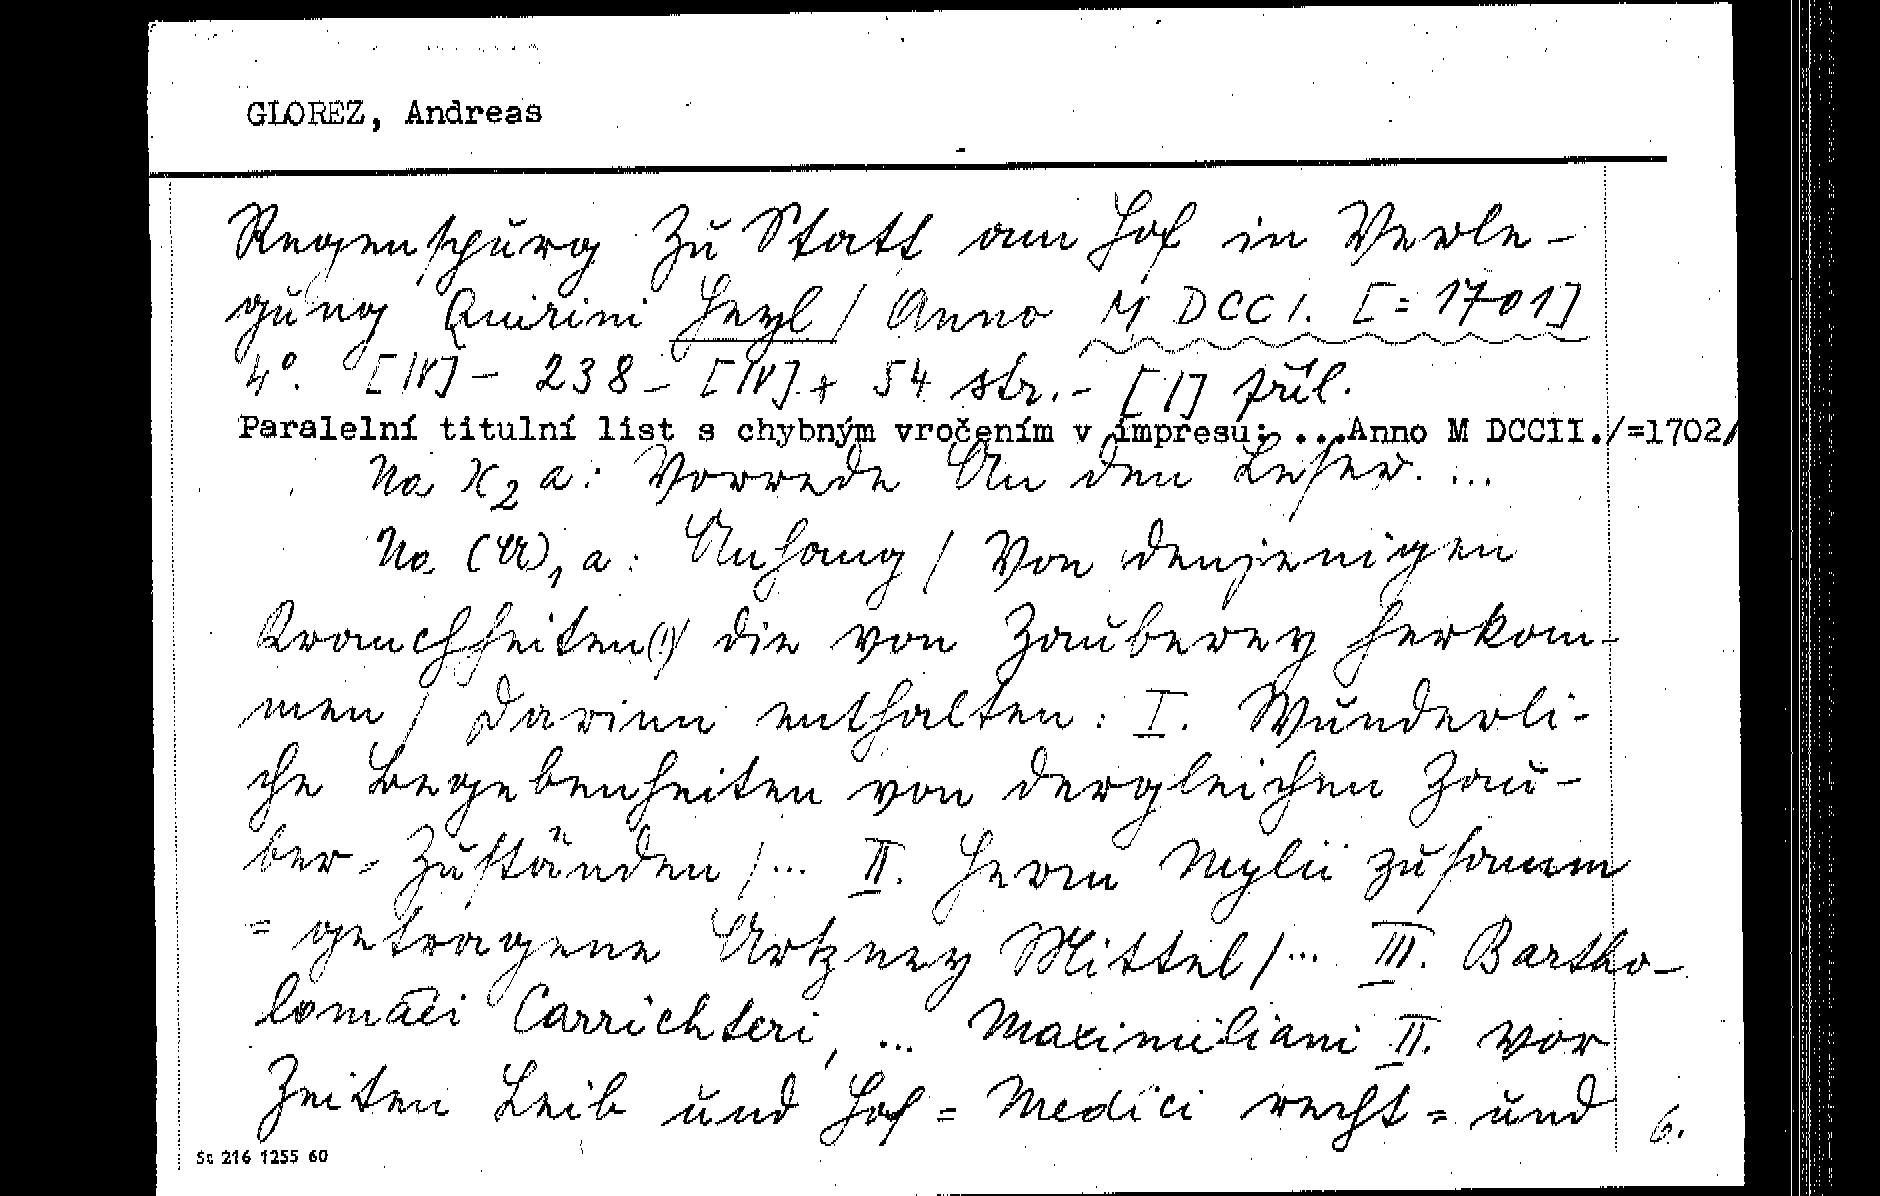 GLOREZ, Andreas
Regenspurg Zu Statt am Hof in Verle-
gung Quirini Heyl / Anno M DCC I. [= 1701]
4°. [IV] - 238 - [IV] + 54 str. - [1] příl.
Paralelní titulní list s chybným vročením v impresu: ...Anno M DCCII./=1702/
Na X2 a: Vorrede An den Leser. ...
Na (A)1 a: Anhang / Von denjenigen
Kranchheiten(!)/ die von Zauberey herkom-
men / Darinn enthalten: I. Wunderli-
che Begebenheiten von dergleichen Zau-
ber= Zuständen /... II. Herrn Mylii zusamm
= getragene Artzney Mittel /... III. Bartho-
lomaei Carrichteri, ... Maximiliani II. vor
Zeiten Leib und Hof = Medici recht = und
6.
Sc 216 1255 60